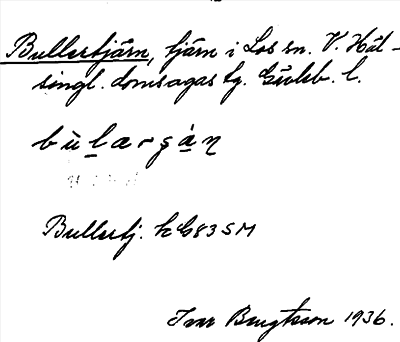 Bullertjärn, tjärn i Los sn. V. Häl-
singl. domsagas tg. Gävleb. l.
bùlarʂán
Bullertj. k G83SM
Ivar Bengtsson 1936.